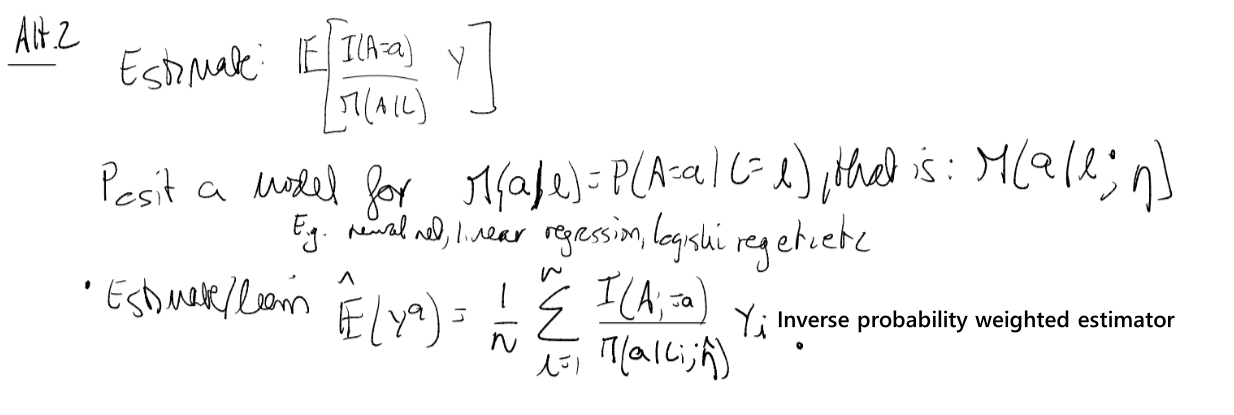 Alt.2
Estimate: E[ I(A=a) / π(A|L) Y ]
Posit a model for π(a|l) = P(A=a | L=l), that is: π(a|l; η)
E.g. neural net, linear regression, logistic reg etc etc
• Estimate/learn Ê(Yᵃ) = 1/n Σᵢ₌₁ⁿ I(Aᵢ=a) / π(a|Lᵢ; η̂) Yᵢ Inverse probability weighted estimator